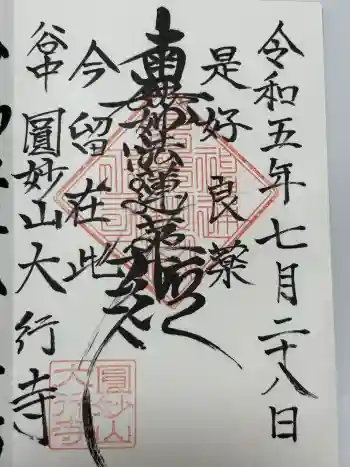 令和五年七月二十八日
是好良薬
南無妙法蓮華経
今留在此
谷中 圓妙山大行寺
圓妙山
大行寺